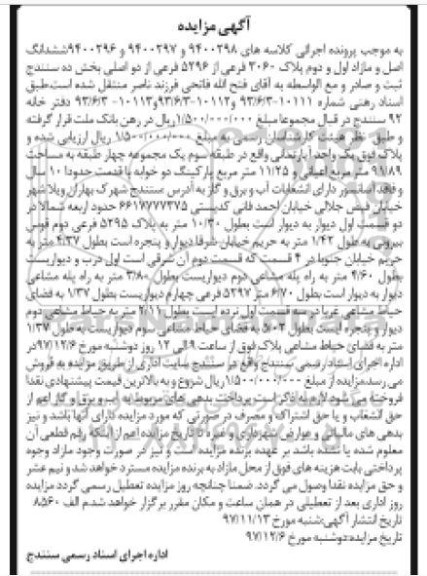 آگهی مزایده
به موجب پرونده اجرائی کلاسه های ۹۴۰۰۲۹۸ و ۹۴۰۰۲۹۷ و ۹۴۰۰۲۹۶ششدانگ
اصل و مازاد اول و دوم پلاک ۳۰۶۰ فرعی از ۵۲۹۶ فرعی از دو اصلی بخش ده سنندج
ثبت و صادر و مع الواسطه به آقای فتح الله فاتحی فرزند ناصر منتقل شده است.طبق
اسناد رهنی شماره ۱۰۱۱۱-۹۳/۶/۳و۱۰۱۱۲-۹۳/۶/۳و۱۰۱۱۳-۹۳/۶/۳ دفتر خانه
۹۲ سنندج در قبال مجموعا مبلغ ۱/۵۰۰/۰۰۰/۰۰۰ریال در رهن بانک ملت قرار گرفته
و طبق نظر هیئت کارشناسان رسمی به مبلغ ۱/۵۰۰/۰۰۰/۰۰۰ ریال ارزیابی شده و
پلاک فوق یک واحد آپارتمانی واقع در طبقه سوم یک مجموعه چهار طبقه به مساحت
۹۱/۸۹ متر مربع اعیانی و ۱۱/۲۵ متر مربع پارکینگ دو خوابه با قدمت حدودا ۱۰ سال
و فاقد آسانسور دارای انشعابات آب و برق و گاز به آدرس سنندج شهرک بهاران ویلا شهر
خیابان جلالی خیابان احمد فانی کدپستی ۶۶۱۷۷۷۷۳۷۵ حدود اربعه شمالا در
دو قسمت اول دیوار به دیوار است بطول ۱۰/۳۰ متر به پلاک ۵۲۹۵ فرعی دوم قوسی
بیرونی به طول ۱/۴۲ متر به حریم خیابان شرقا دیوار و پنجره است بطول ۴/۳۷ متر به
حریم خیابان جنوبا در ۴ قسمت که قسمت دوم آن شرقی است اول درب و دیواریست
بطول ۴/۶۰ متر به راه پله مشاعی دوم دیواریست بطول ۳/۸۰ متر به راه پله مشاعی
دیوار به دیوار است بطول ۶/۷۰ متر ۵۲۹۷ فرعی چهارم دیواریست بطول ۱/۳۷ به فضای
حیاط مشاعی غربا در سه قسمت اول نرده است بطول ۲/۱۱ متر به حیاط مشاعی دوم
دیوار و پنجره است بطول ۵/۰۳ به فضای حیاط مشاعی سوم دیواریست به طول ۱/۳۷
متر به فضای حیاط مشاعی پلاک فوق از ساعت ۹ الی ۱۲ روز دوشنبه مورخ ۹۷/۱۲/۶در
اداره اجرای اسناد رسمی سنندج واقع در سنندج سایت اداری از طریق مزایده به فروش
می رسد.مزایده از مبلغ ۱/۵۰۰/۰۰۰/۰۰۰ ریال شروع و به بالاترین قیمت پیشنهادی نقدا
فروخته می شود لازم به ذکر است پرداخت بدهی های مربوط به آب و برق و گاز اعم از
حق انشعاب و یا حق اشتراک و مصرف در صورتی که مورد مزایده دارای آنها باشد و نیز
بدهی های مالیاتی و عوارض شهرداری و غیره تا تاریخ مزایده اعم از اینکه رقم قطعی آن
معلوم شده یا نشده باشد بر عهده برنده مزایده است و نیز در صورت وجود مازاد وجوه
پرداختی بابت هزینه های فوق از محل مازاد به برنده مزایده مسترد خواهد شد و نیم عشر
و حق مزایده نقدا وصول می گردد. ضمنا چنانچه روز مزایده تعطیل رسمی گردد مزایده
روز اداری بعد از تعطیلی در همان ساعت و مکان مقرر برگزار خواهد شد.م الف ۸۵۶۰
تاریخ انتشار آگهی:شنبه مورخ ۹۷/۱۱/۱۳
تاریخ مزایده:دوشنبه مورخ ۹۷/۱۲/۶
اداره اجرای اسناد رسمی سنندج